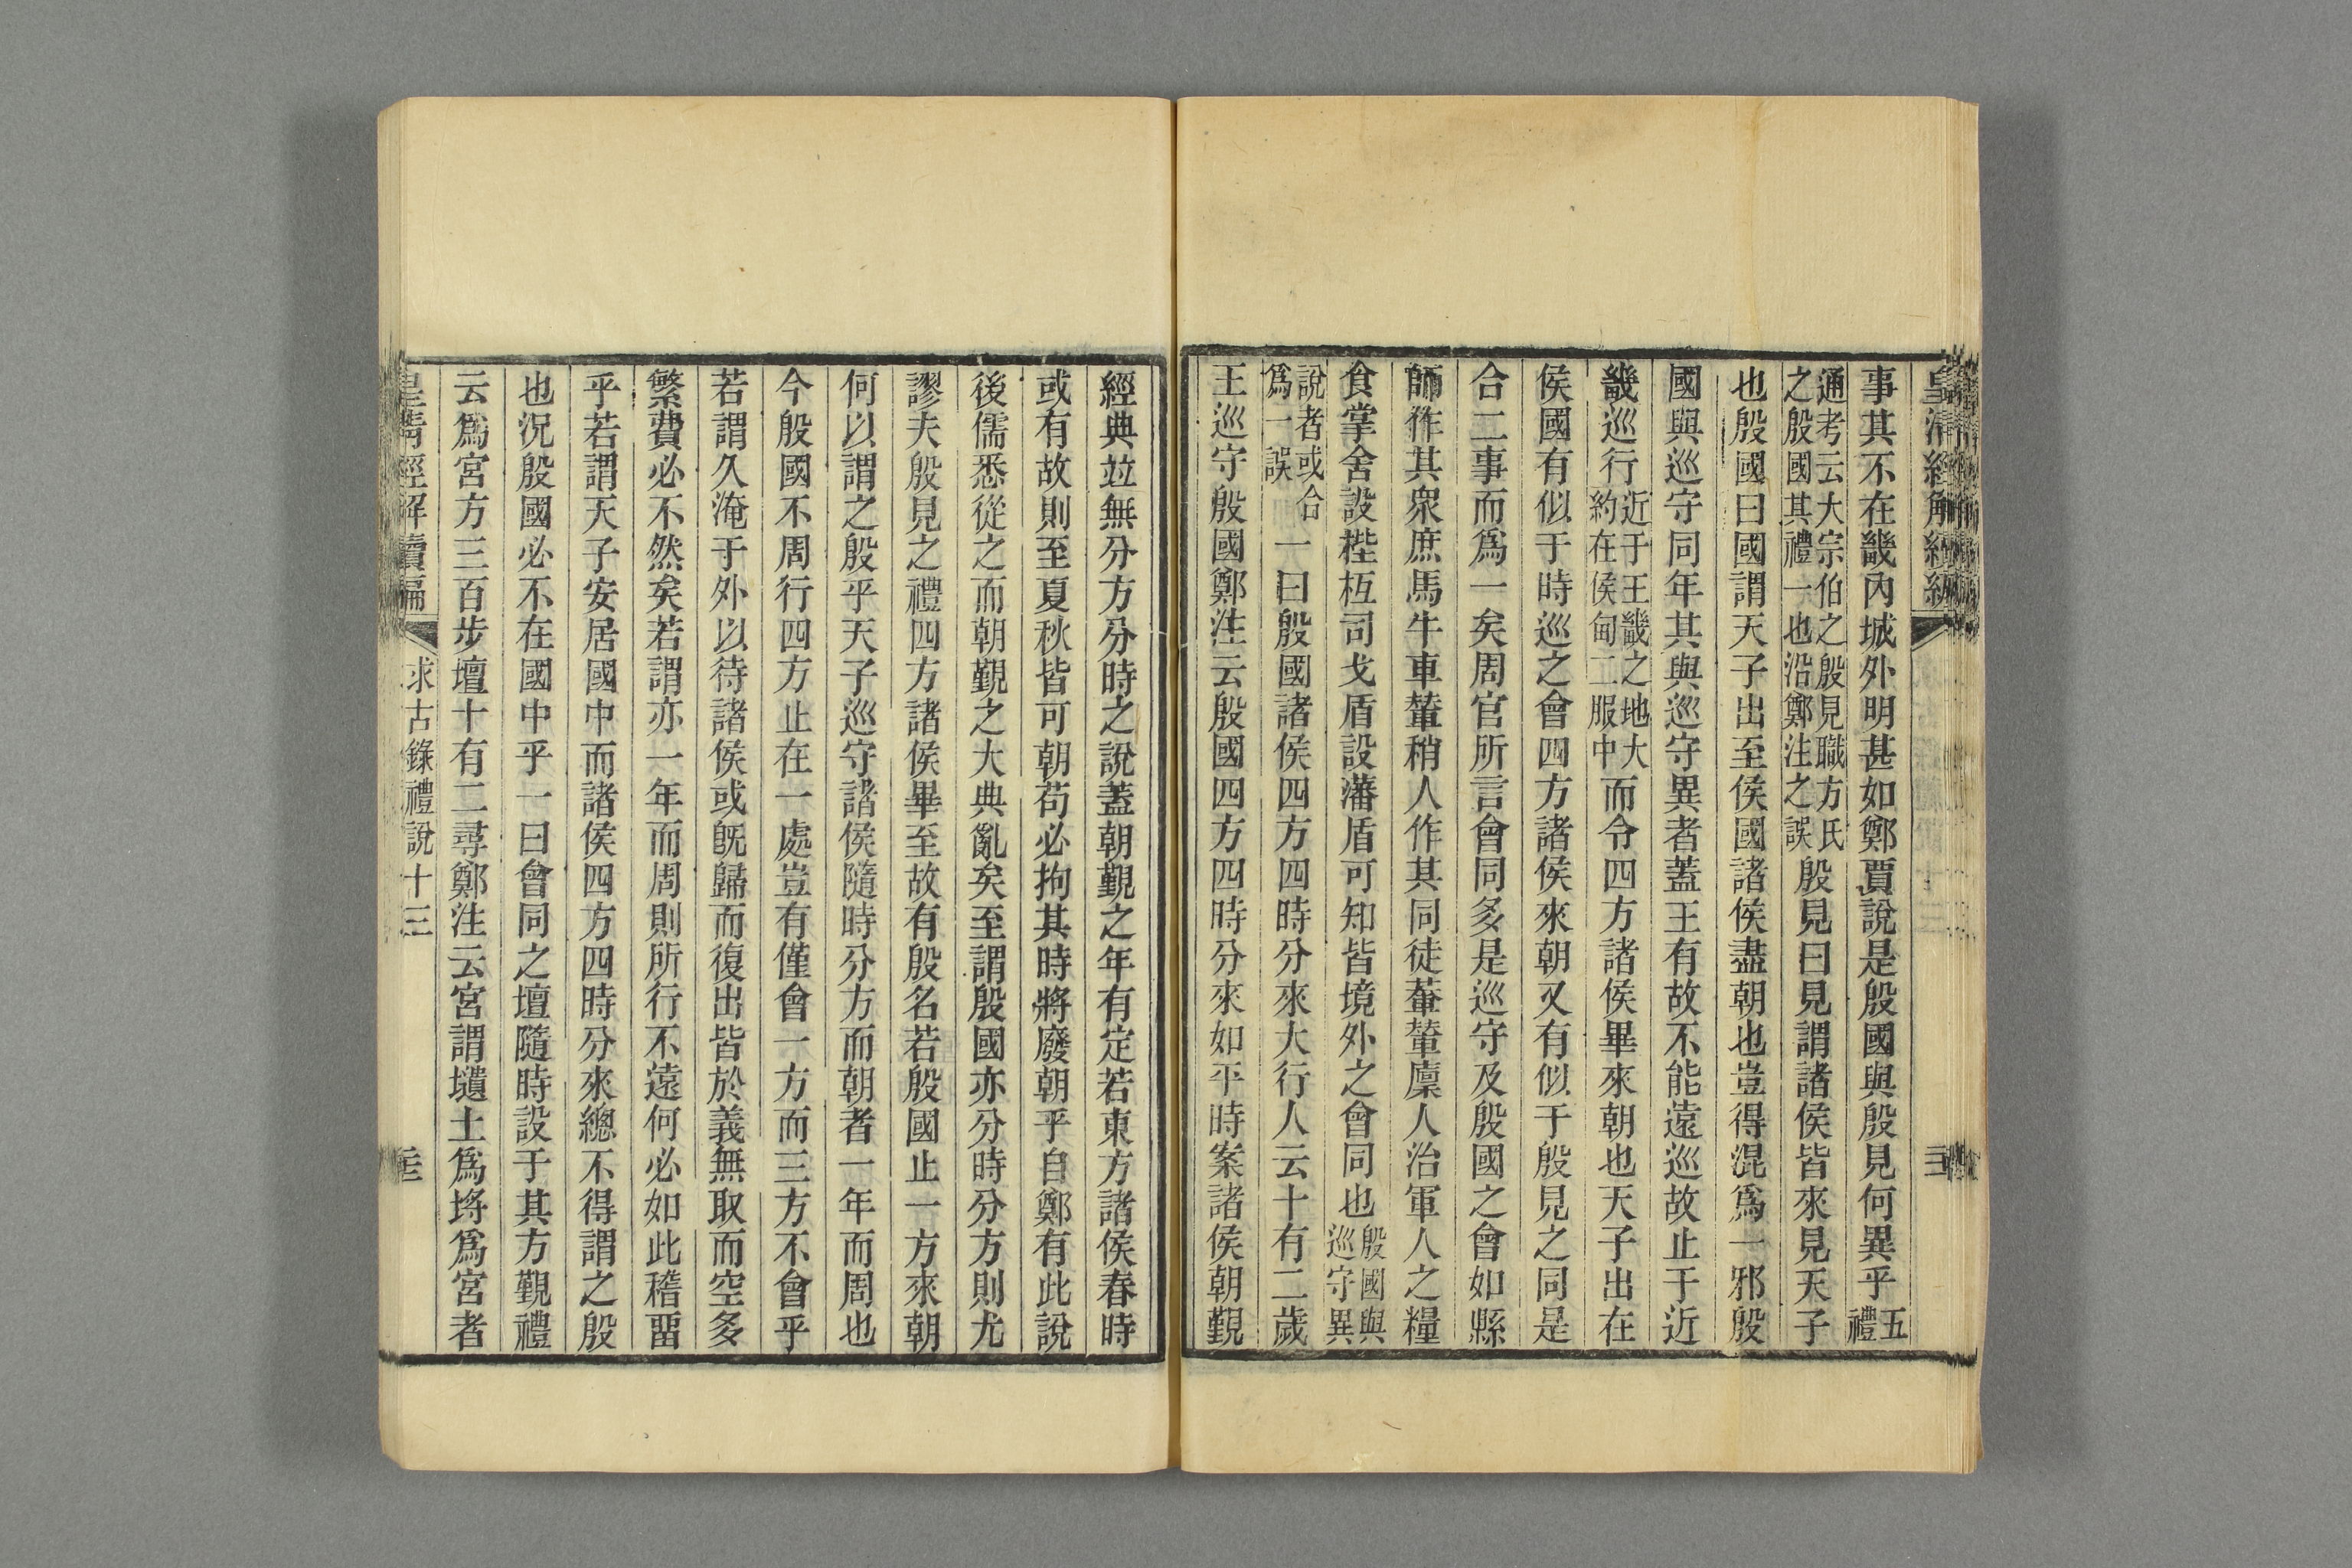 事其不在畿內城外明甚如鄭賈說是殷國與殷見何異乎五禮
通考云大宗伯之殷見職方氏之殷國其禮一也沿鄭注之誤殷見曰見謂諸侯皆來見天子
也殷國曰國謂天子出至侯國諸侯盡朝也豈得混爲一邪殷
國與巡守同年其與巡守異者蓋王有故不能遠巡故止于近
畿巡行近于王畿之地大約在侯甸二服中而令四方諸侯畢來朝也天子出在
侯國有似于時巡之會四方諸侯來朝又有似于殷見之同是
合二事而爲一矣周官所言會同多是巡守及殷國之會如縣
師作其衆庶馬牛車輦稍人作其同徒輂輦廩人治軍人之糧
食掌舍設梐枑司戈盾設藩盾可知皆境外之會同也殷國與巡守異
說者或合爲一誤一曰殷國諸侯四方四時分來大行人云十有二歲
王巡守殷國鄭注云殷國四方四時分來如平時案諸侯朝覲
經典竝無分方分時之說蓋朝覲之年有定若東方諸侯春時
或有故則至夏秋皆可朝苟必拘其時將廢朝乎自鄭有此說
後儒悉從之而朝覲之大典亂矣至謂殷國亦分時分方則尤
謬夫殷見之禮四方諸侯畢至故有殷名若殷國止一方來朝
何以謂之殷乎天子巡守諸侯隨時分方而朝者一年而周也
今殷國不周行四方止在一處豈有僅會一方而三方不會乎
若謂久淹于外以待諸侯或旣歸而復出皆於義無取而空多
繁費必不然矣若謂亦一年而周則所行不遠何必如此稽畱
乎若謂天子安居國中而諸侯四方四時分來總不得謂之殷
也況殷國必不在國中乎一曰會同之壇隨時設于其方覲禮
云爲宮方三百步壇十有二尋鄭注云宮謂壝土爲埓爲宮者
皇淸經解續編
求古錄禮說十三